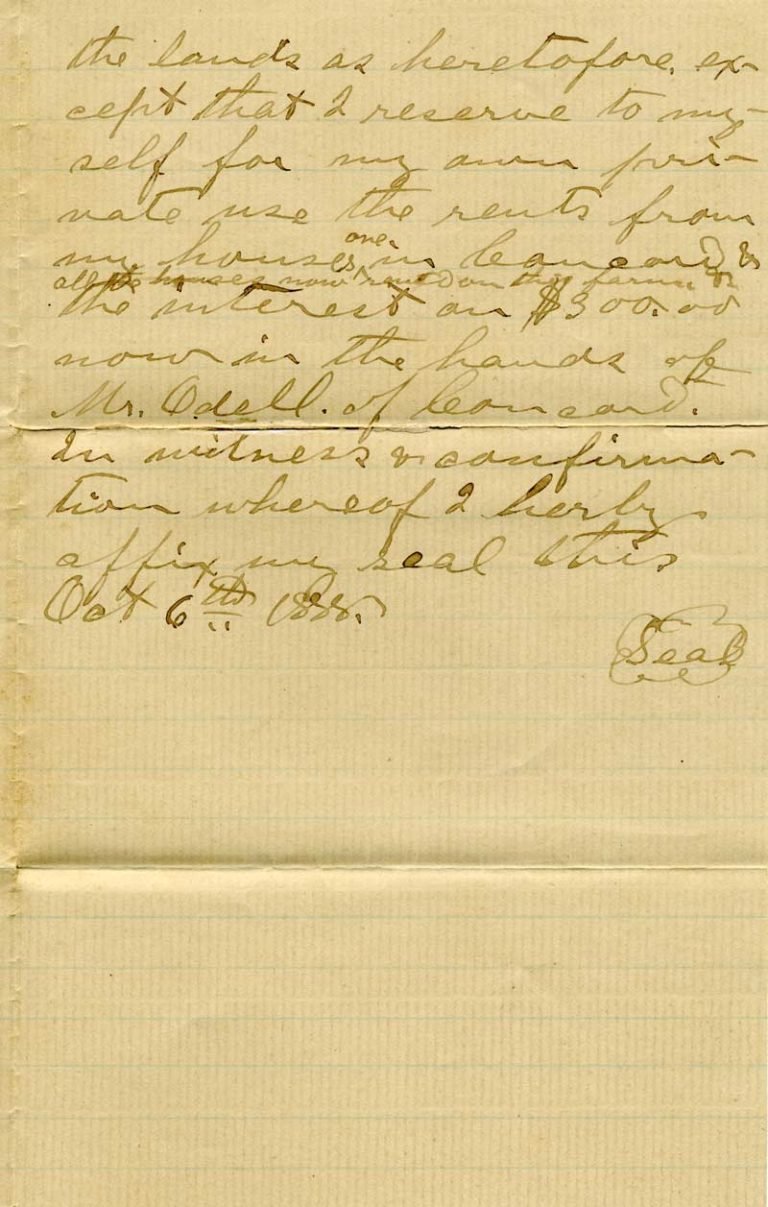 the lands as heretofore. ex-
cept that I reserve to my-
self for my own pri-
vate use the rents from
one
my houses in Concord &
all the houses now on this farm &
the interest on $300.00
now in the hands of
Mr. Odell. of Concord.
In witness & confirma-
tion whereof I herby
affix my seal this
Oct 6th 1888.
Seal